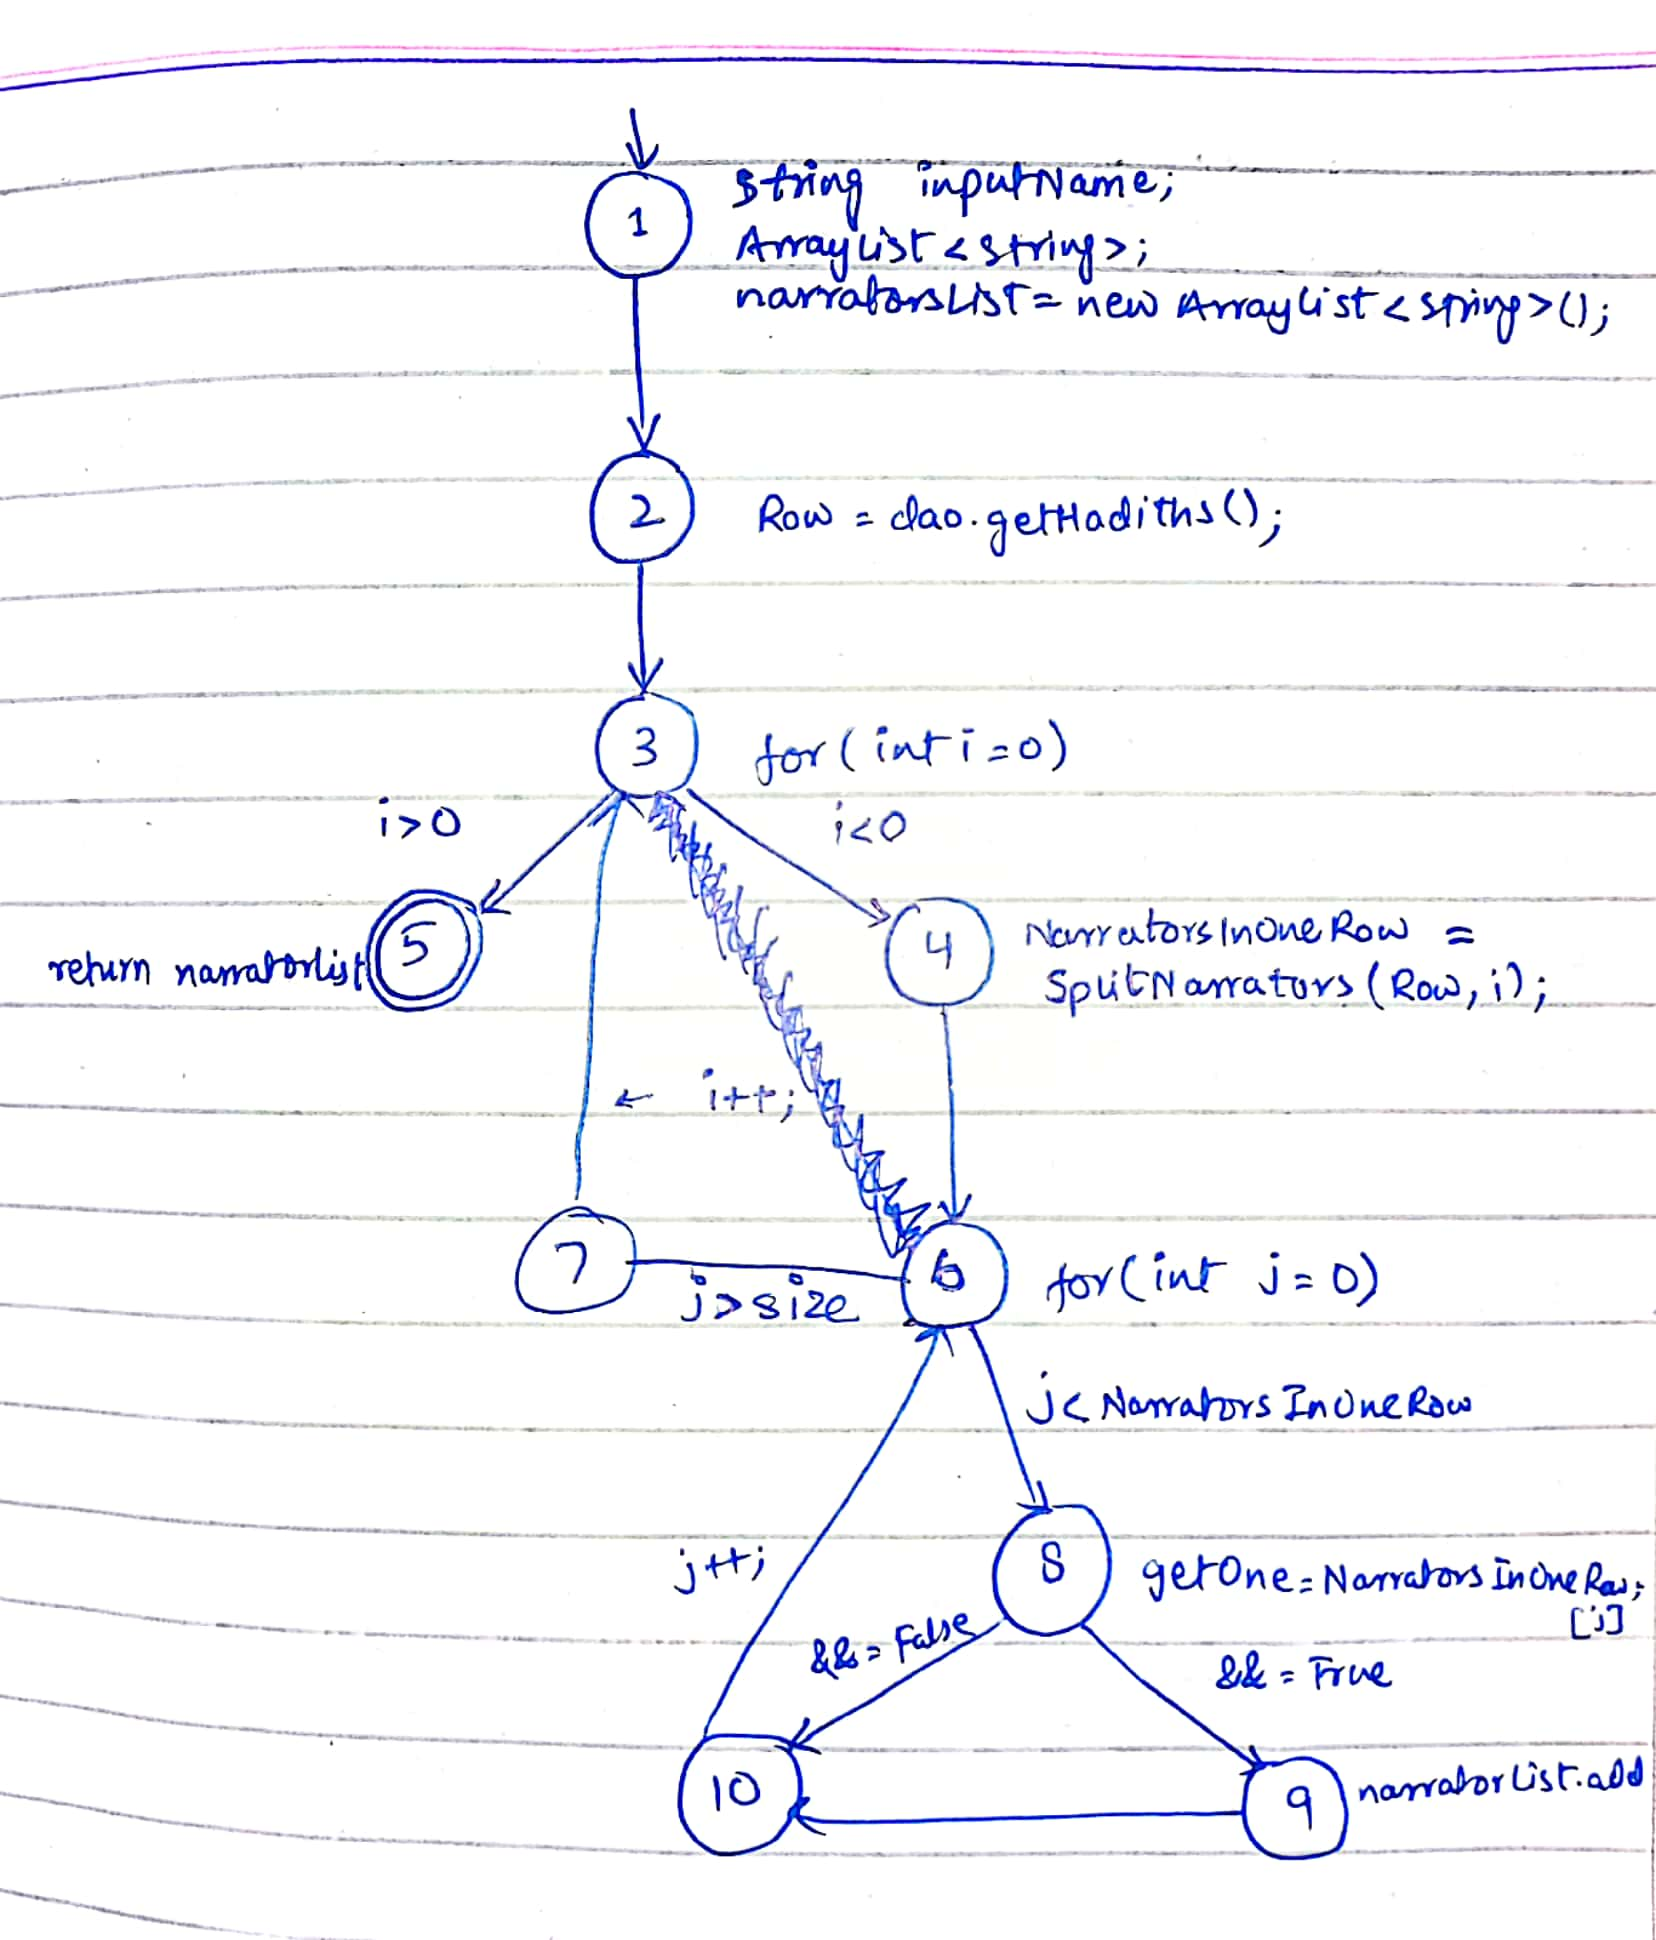 1
String inputName;
ArrayList<String>;
narratorsList = new ArrayList<String>();
2
Row = dao.getHadiths();
3
for(int i=0)
i>0
i<0
5
return narratorlist
4
NarratorsInOneRow =
SplitNarrators(Row, i);
← i++;
7
j>size
6
for(int j=0)
j< NarratorsInOneRow
j++;
8
getOne=NarratorsInOneRow;
[j]
&&=False
&&=True
10
9
narratorList.add